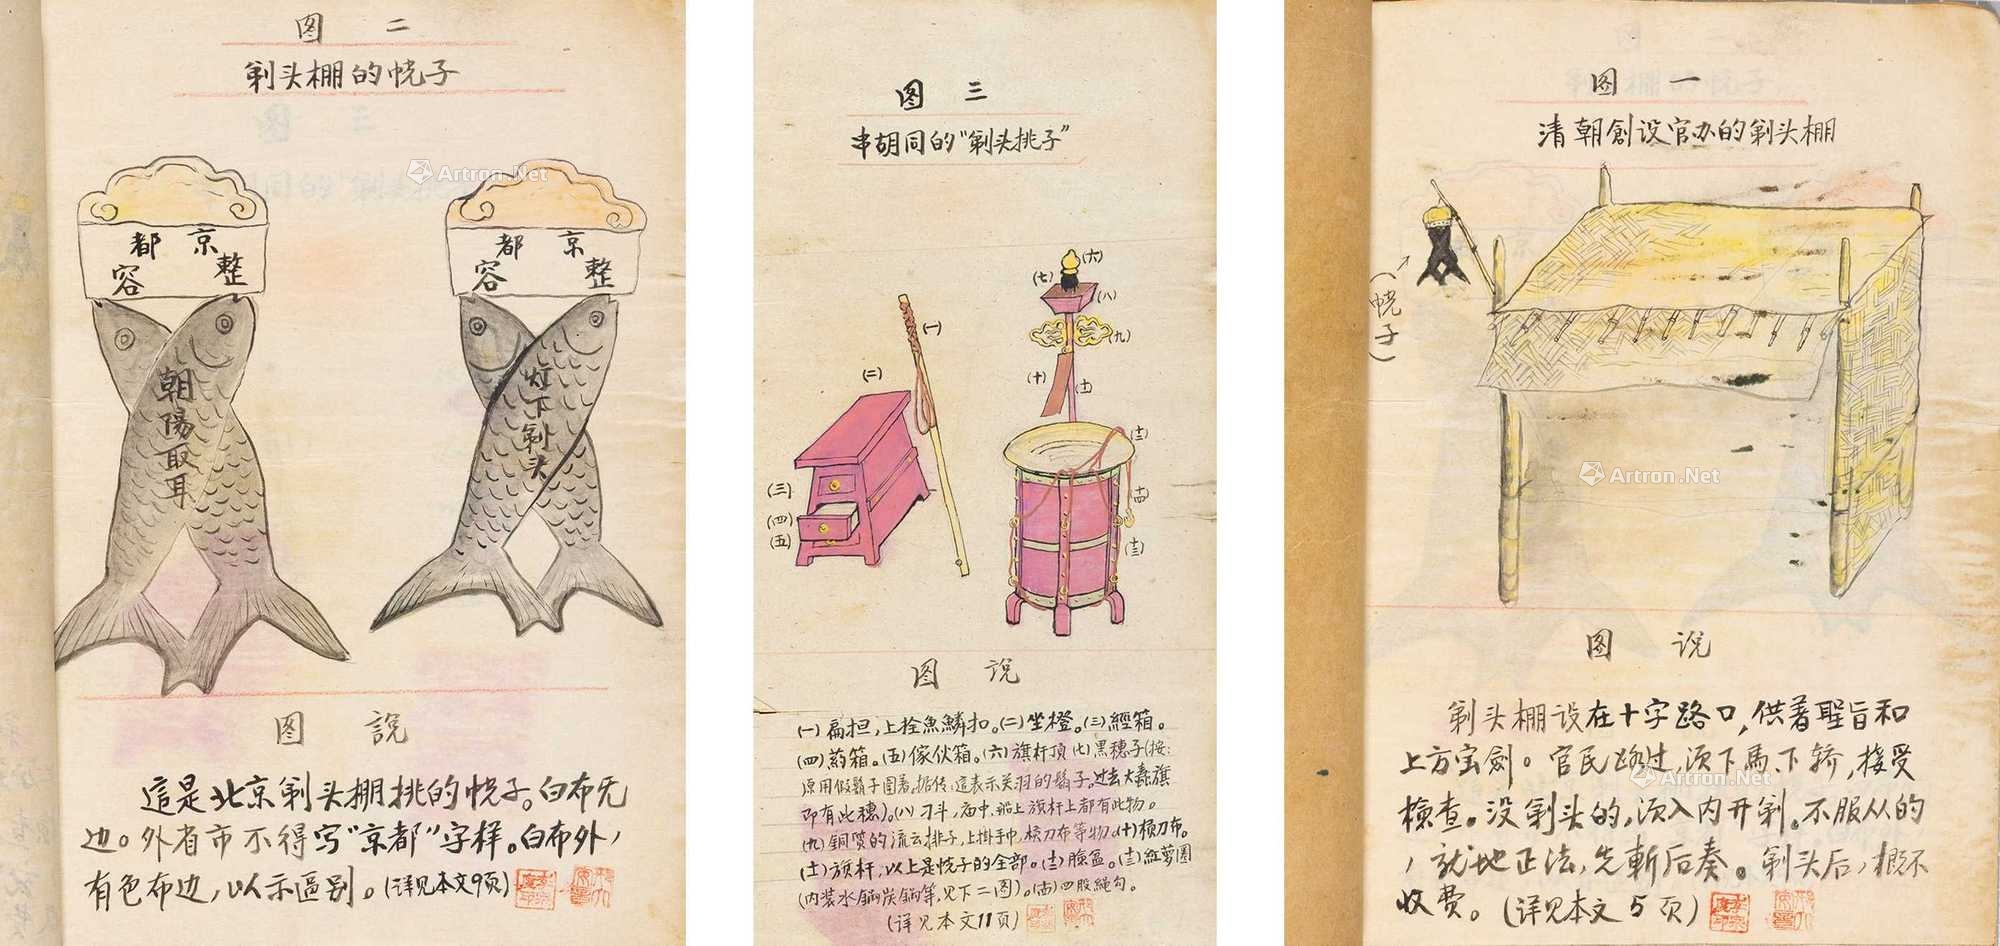 图 二
剃头棚的幌子
京都
整容
朝陽取耳
京都
整容
灯下剃头
图 說
這是北京剃头棚挑的幌子。白布无
边。外省市不得写“京都”字样。白布外，
有色布边，以示區别。（详见本文9页）
图 三
串胡同的“剃头挑子”
(一)
(二)
(三)
(四)
(五)
(六)
(七)
(八)
(九)
(十)
(十一)
(十二)
(十四)
(十三)
图 说
(一)扁担，上拴魚鱗扣。(二)坐櫈。(三)經箱。
(四)葯箱。(五)傢伙箱。(六)旗杆頂(七)黑穗子(按:
原用假鬍子围着。据传，這表示关羽的鬍子。过去大纛旗
即有此穗)。(八)刁斗，庙中、船上旗杆上都有此物。
(九)銅質的流云排子，上掛手巾、槓刀布等物。(十)槓刀布。
(十一)旗杆，以上是幌子的全部。(十二)臉盆。(十三)紅萝圈
(内装水鍋炭鍋等，见下二图)。(十四)四股繩勾。
(详见本文11页)
图 一
清朝創设官办的剃头棚
(幌子)
图 说
剃头棚设在十字路口，供着聖旨和
上方宝劍。官民路过，须下馬、下轿，接受
檢查。没剃头的，须入内开剃。不服从的
，就地正法，先斬后奏。剃头后，概不
收费。(详见本文5页)
Artron.Net
Artron.Net
Artron.Net